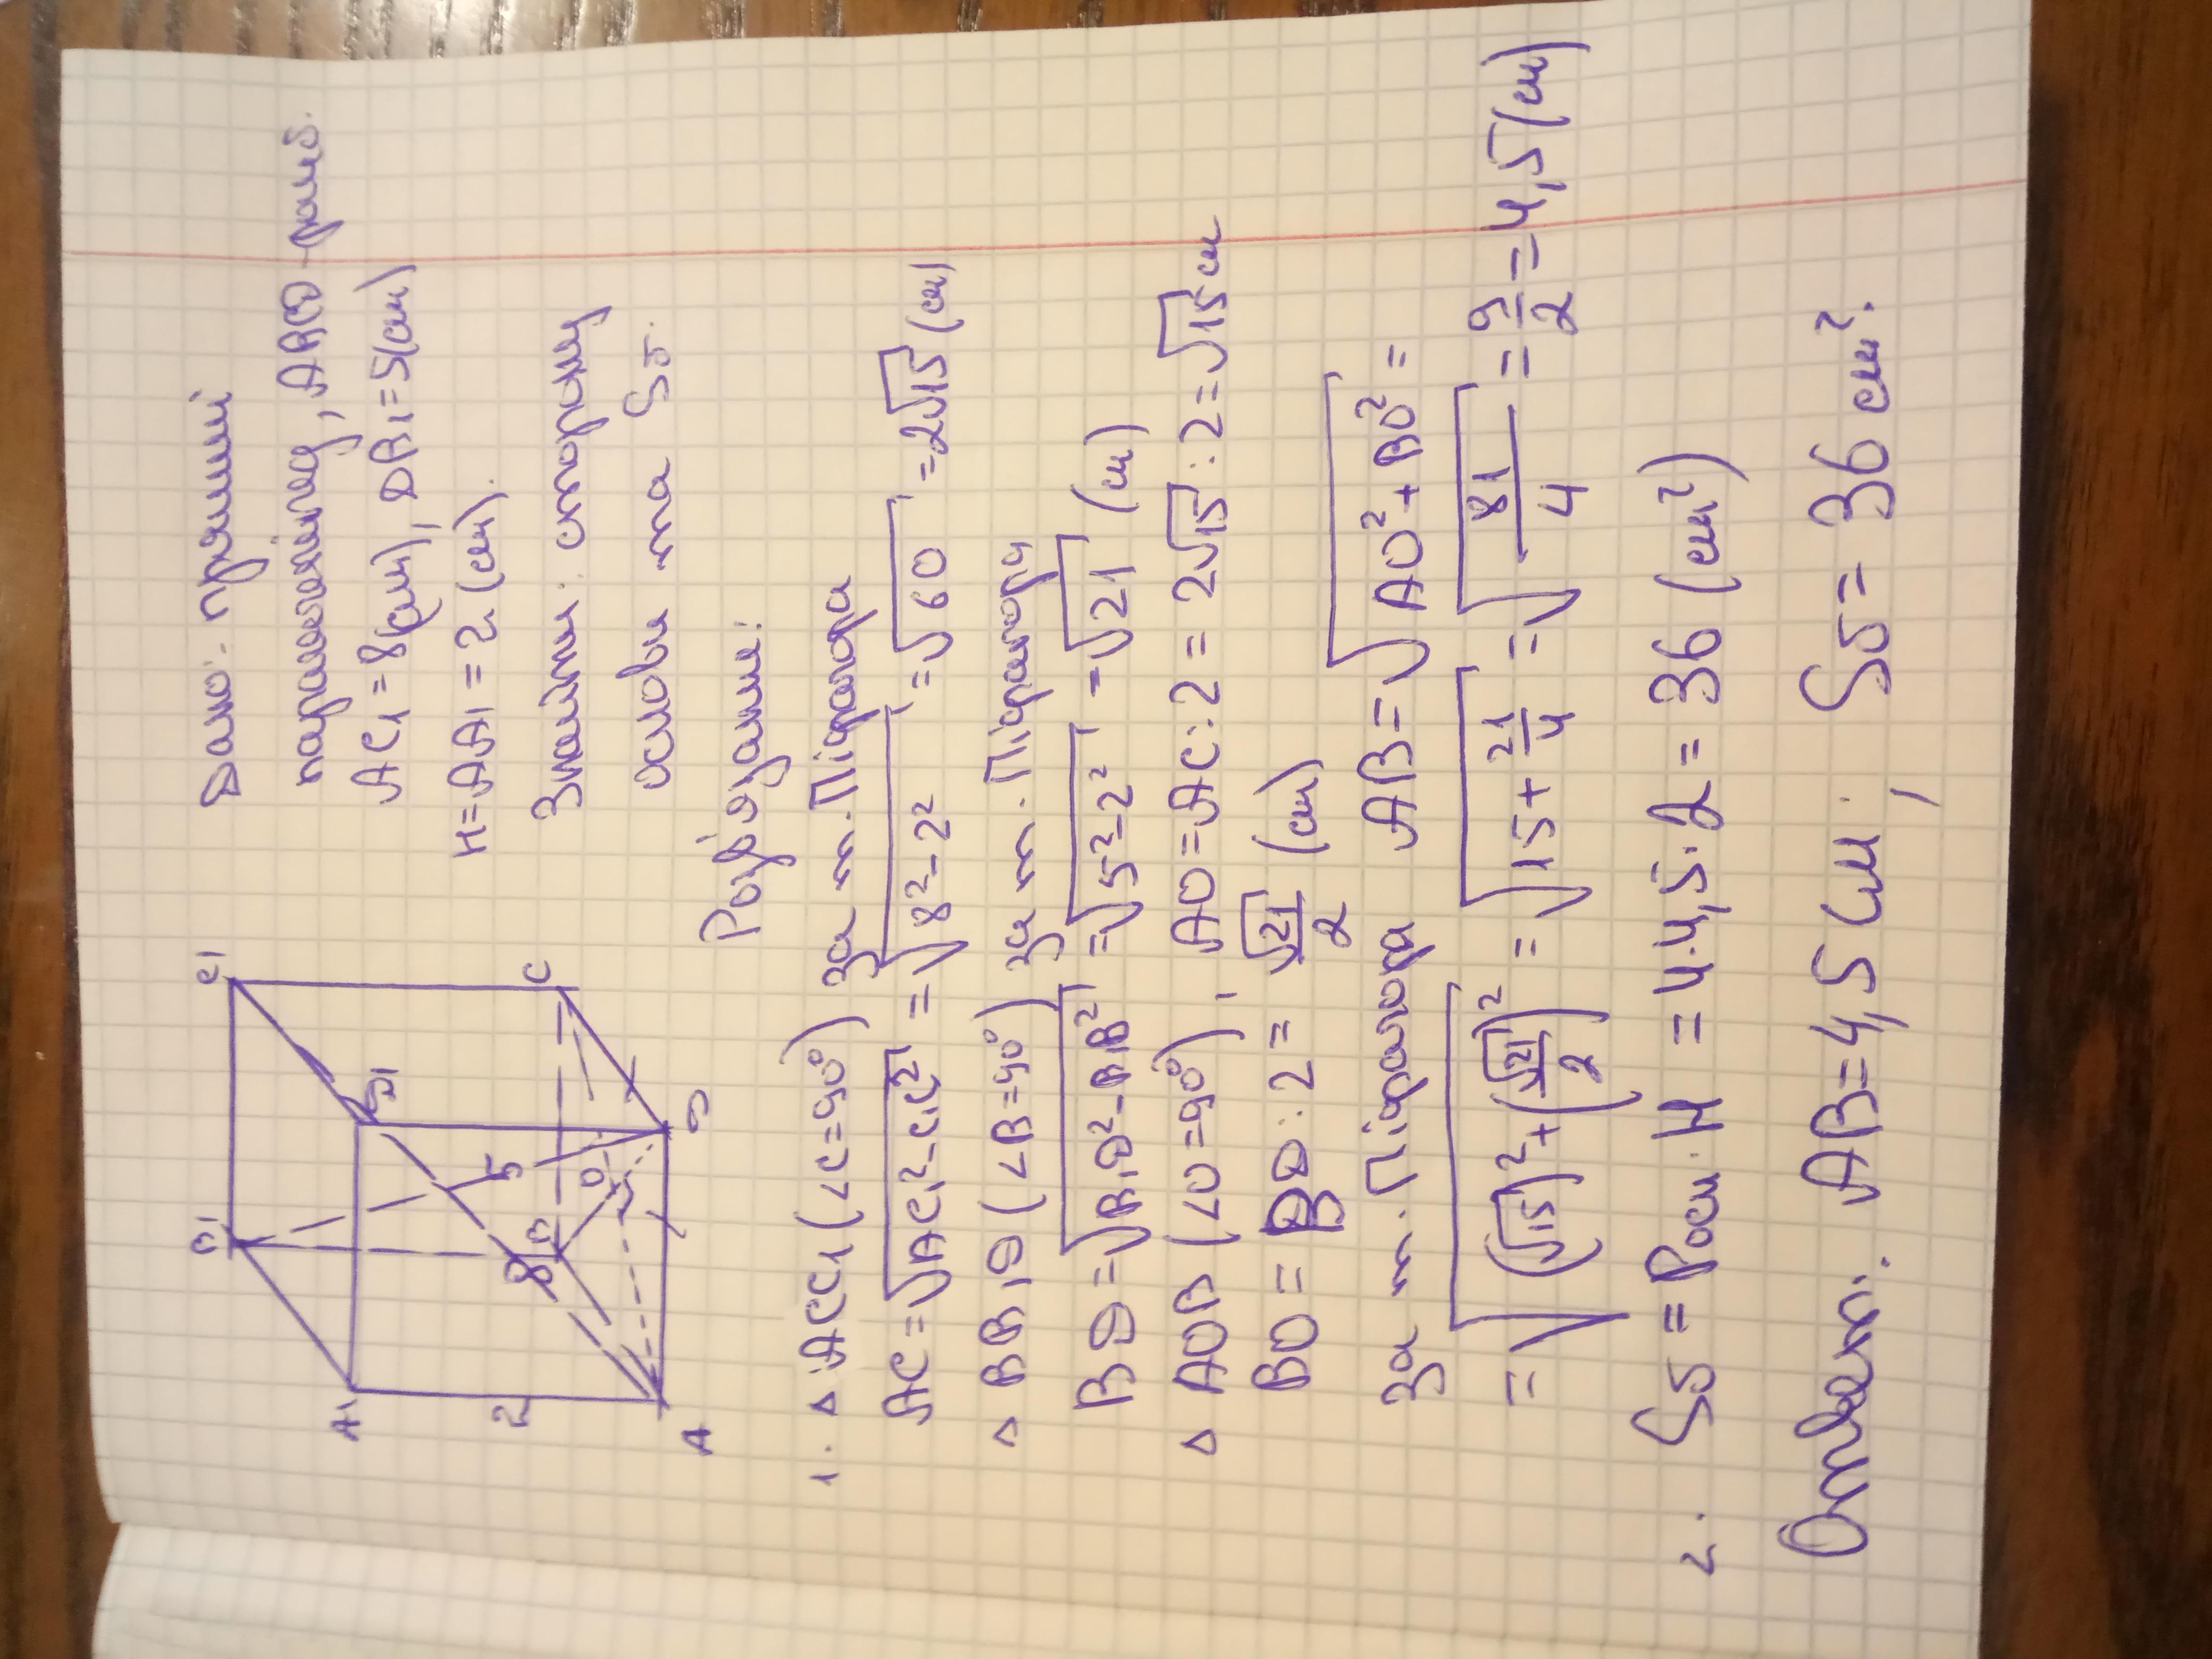 Дано: прямий
паралелепіпед, ABCD - ромб.
AC1 = 8(см), DB1 = 5(см)
H = AA1 = 2 (см).
Знайти: сторону
основи та Sб.
B1 C1
A1 D1
2 8 5
B O C
A D
Розв'язання:
1. △ ACC1 (∠C=90°) за т. Піфагора
AC = √AC1² - C1C² = √8² - 2² = √60 = 2√15 (см)
△ BB1D (∠B=90°) за т. Піфагора
BD = √B1D² - B1B² = √5² - 2² = √21 (см)
△ AOB (∠O=90°), AO = AC : 2 = 2√15 : 2 = √15 см
BO = BD : 2 = √21/2 (см)
За т. Піфагора AB = √AO² + BO² =
= √(√15)² + (√21/2)² = √15 + 21/4 = √81/4 = 9/2 = 4,5 (см)
2. Sб = Pосн · H = 4·4,5·2 = 36 (см²)
Ответ: AB = 4,5 см; Sб = 36 см².